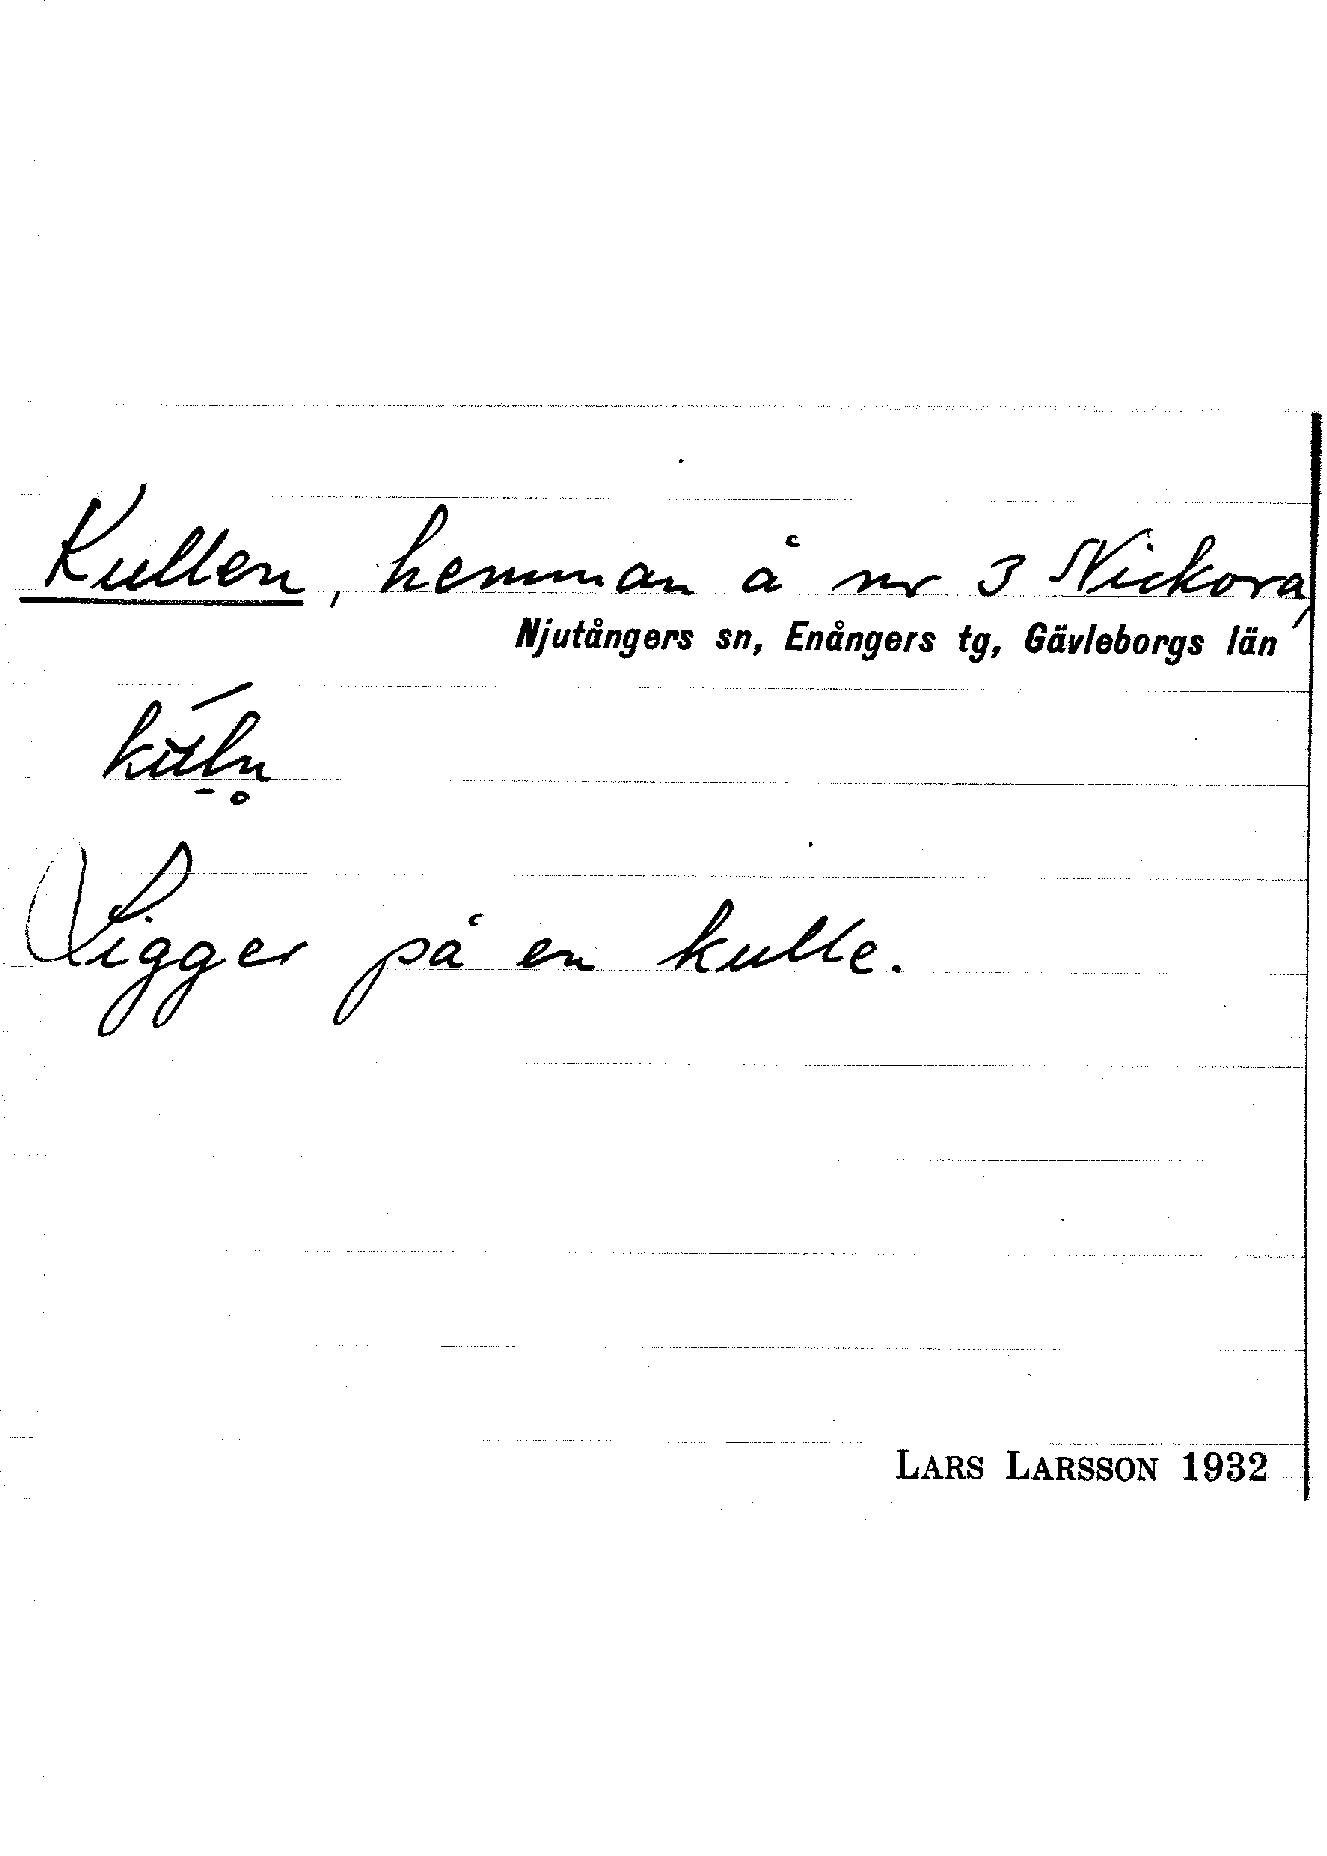 Kullen, hemman å nr 3 Nickora,
Njutångers sn, Enångers tg, Gävleborgs län
Ligger på en kulle.
LARS LARSSON 1932